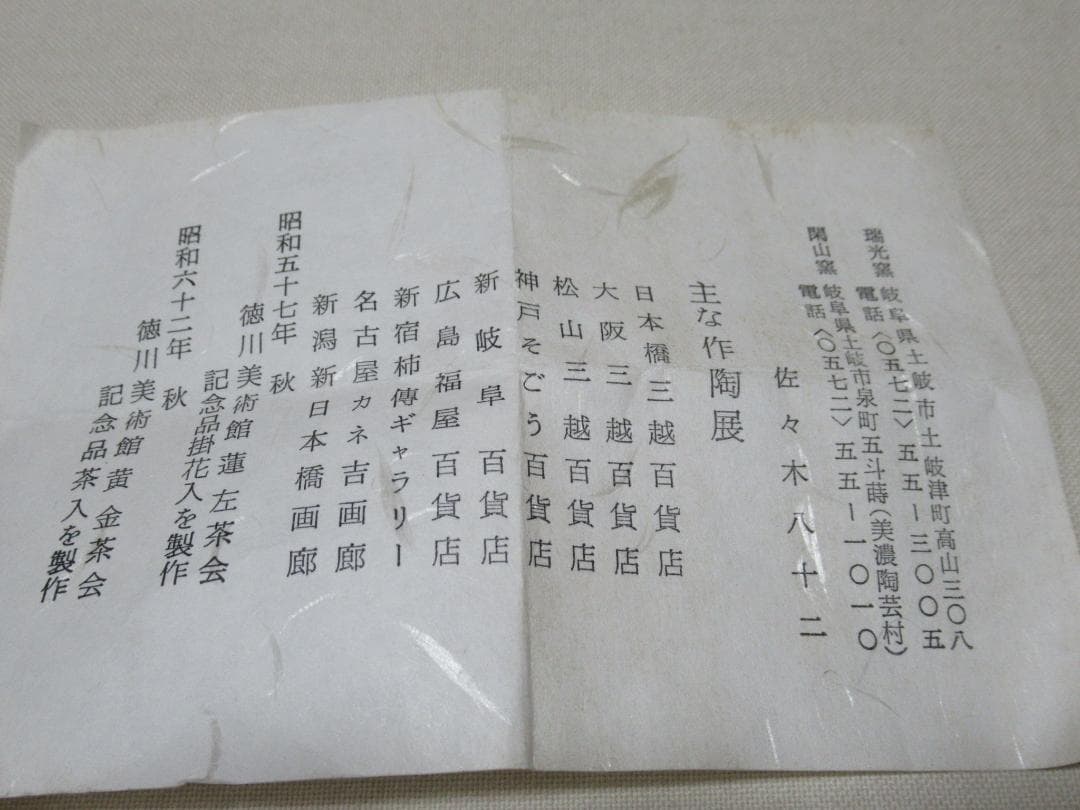 瑞光窯 岐阜県土岐市土岐津町高山三〇八
電話〈〇五七二〉五五ー三〇〇五
閑山窯 岐阜県土岐市泉町五斗蒔(美濃陶芸村)
電話〈〇五七二〉五五ー一〇一〇
佐々木八十二
主な作陶展
日本橋三越百貨店
大阪三越百貨店
松山三越百貨店
神戸そごう百貨店
新岐阜百貨店
広島福屋百貨店
新宿柿傳ギャラリー
名古屋カネ吉画廊
新潟新日本橋画廊
昭和五十七年 秋
徳川美術館蓮左茶会
記念品掛花入を製作
昭和六十二年 秋
徳川美術館黄金茶会
記念品茶入を製作